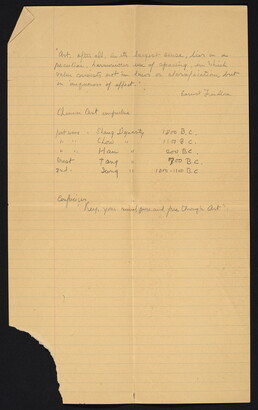 "Art, after all, in its largest sense, lies in a
peculiar, harmonious use of spacing, in which
order consists not in laws or classifications but
in uniqueness of effect."
Ernest
Chinese Art impulse
Shang Dynasty 1800 B.C.
" " Chou " 1100 B.C.
" " Han " 200 B.C.
Tang " 700 B.C.
Sung " 1000-1100 B.C.
Confucius
"Keep your mind pure and free through Art"